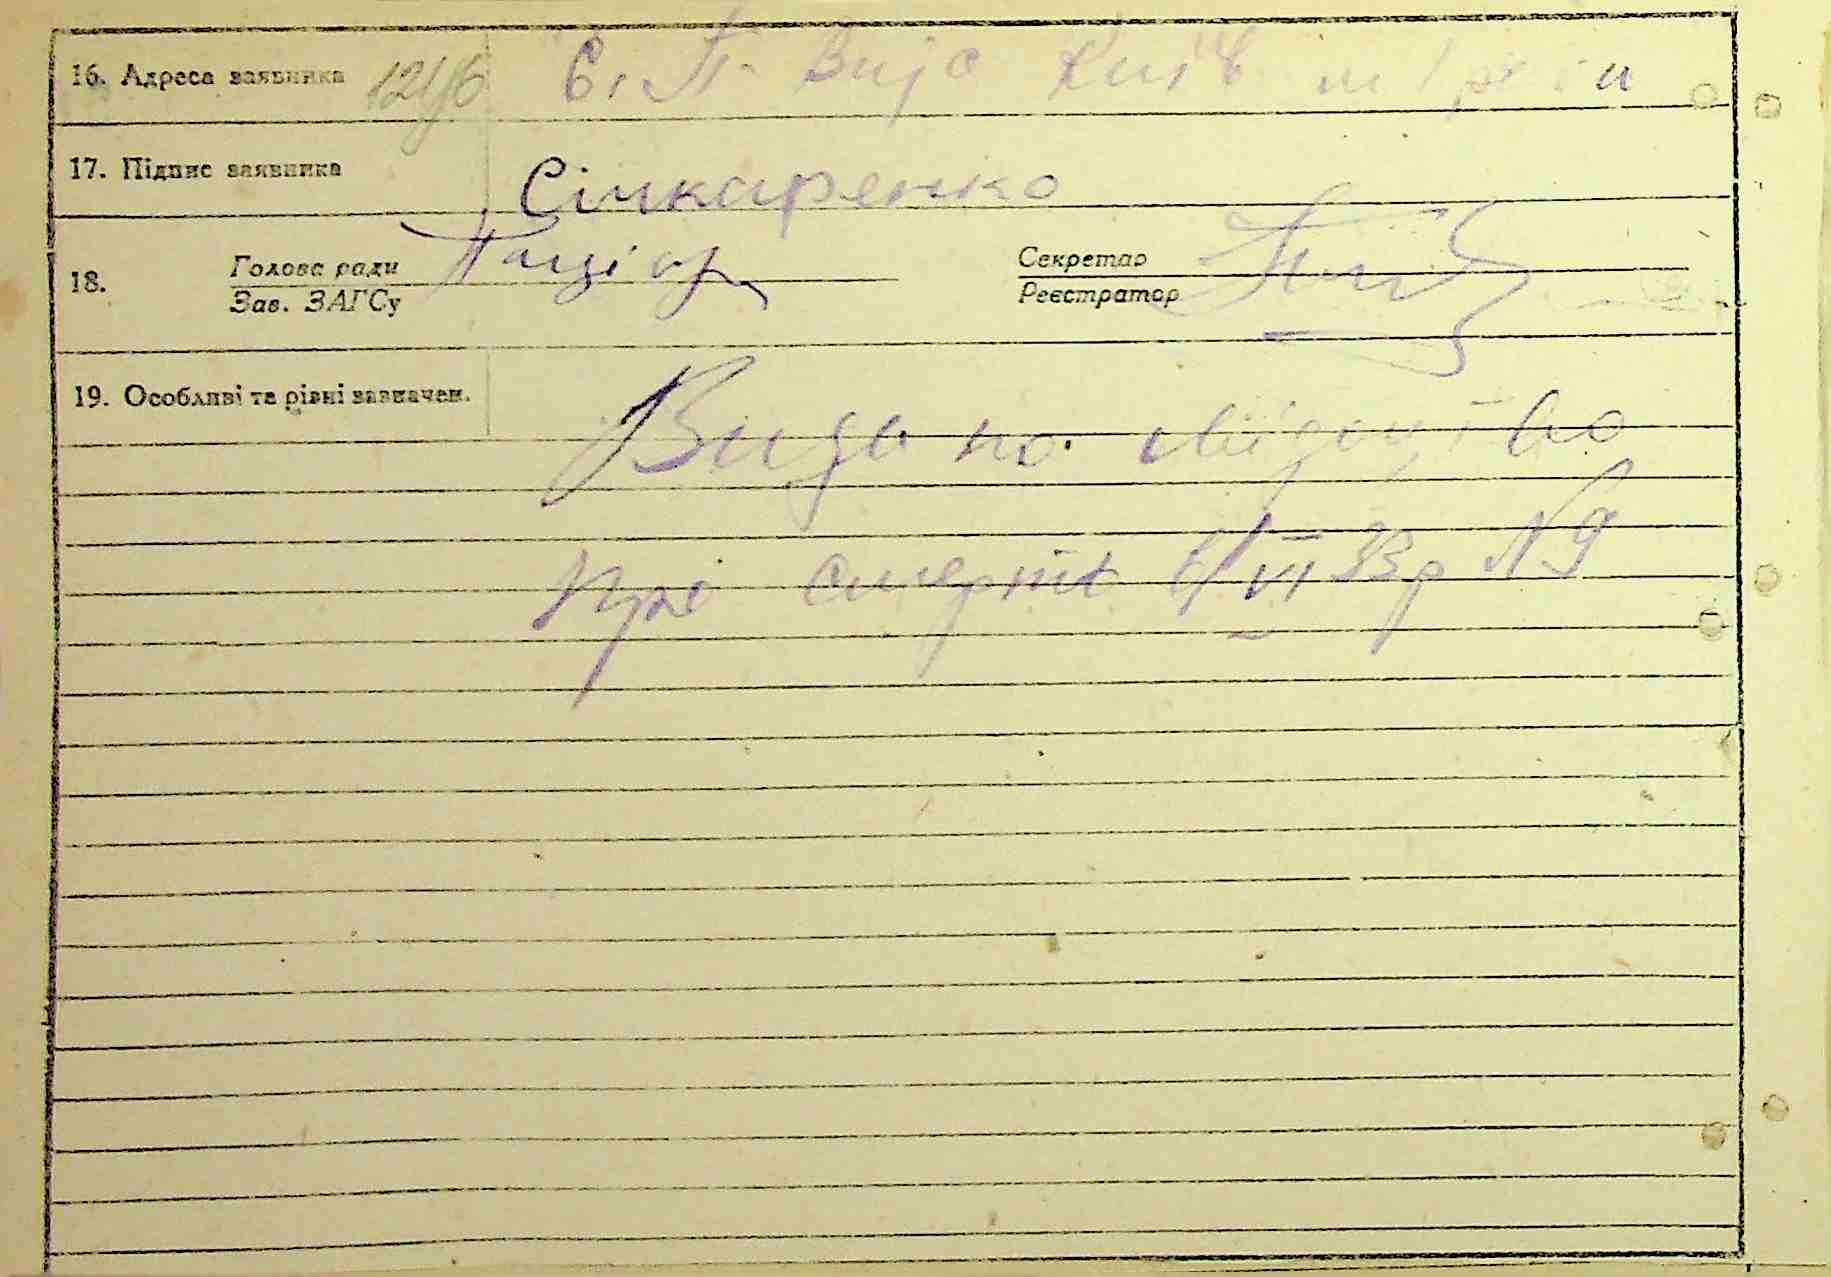 16. Адреса заявника 121/б С. П.
17. Підпис заявника Січкаренко
18. Голова ради Секретар
Зав. ЗАГСу Реєстратор
19. Особливі та різні зазначен.
Видано свідоцтво
про смерть 6/VI 33 р N 9